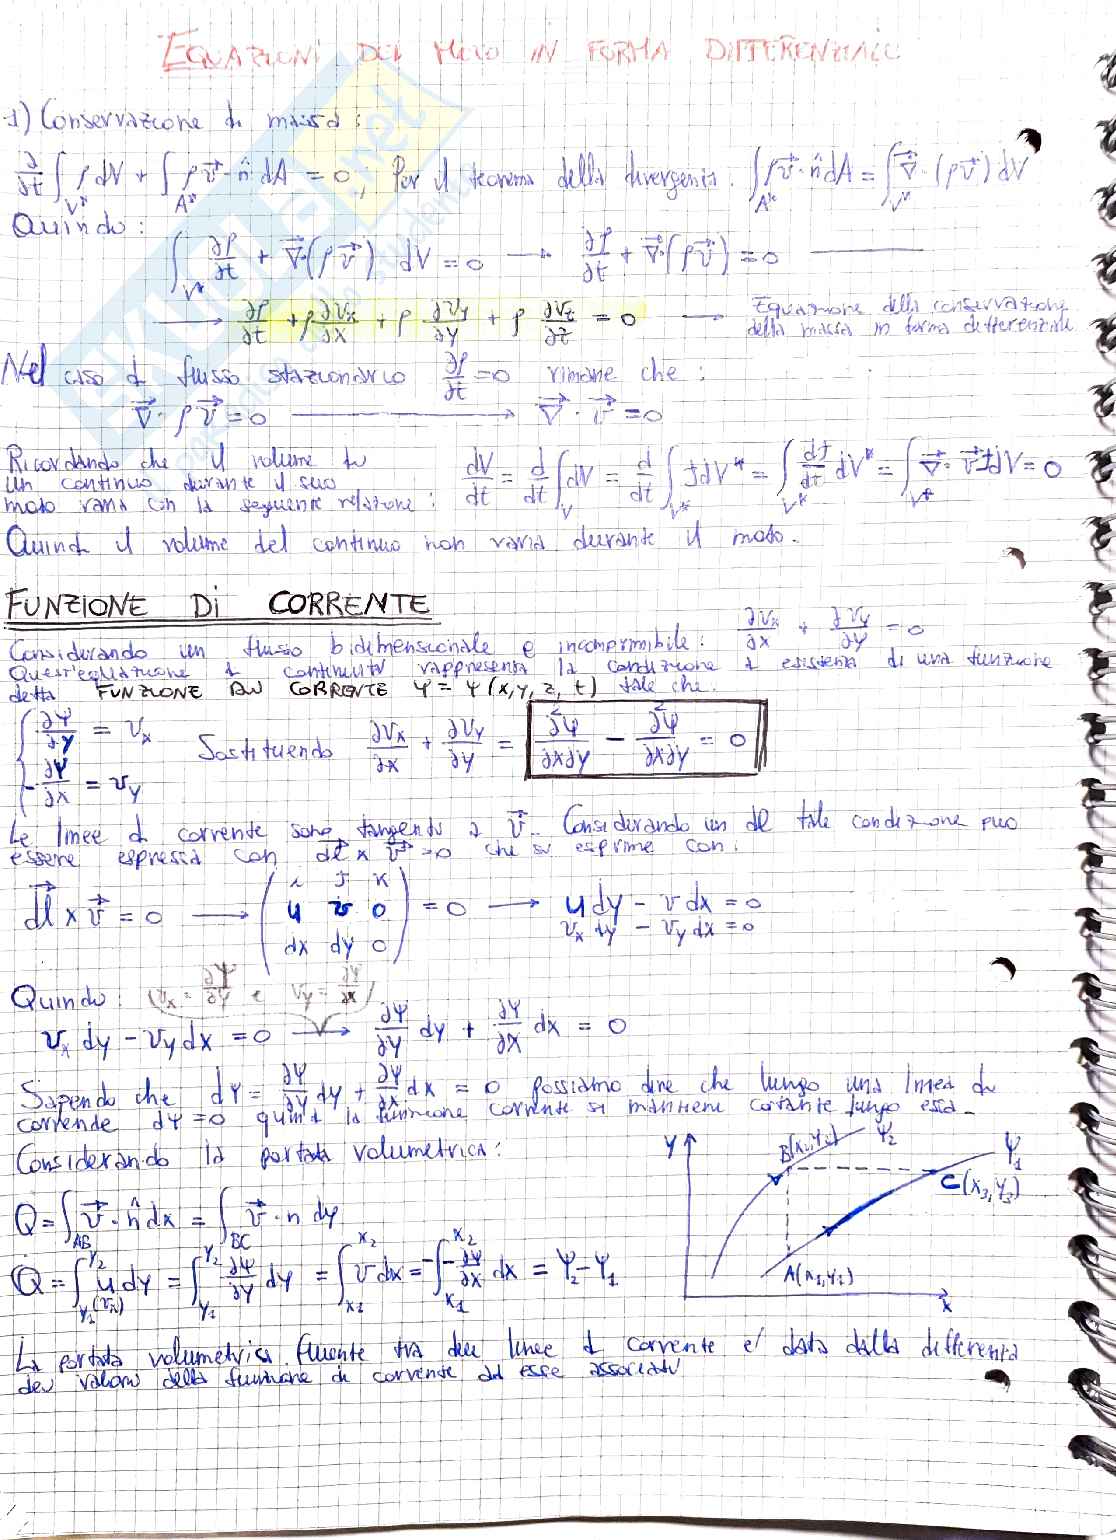 EQUAZIONI DEL MOTO IN FORMA DIFFERENZIALE
1) Conservazione di massa:
∂/∂t ∫_V* ρ dV + ∫_A* ρ v⃗ · n̂ dA = 0, Per il teorema della divergenza. ∫_A* ρ v⃗ · n̂ dA = ∫_V* ∇⃗ · (ρ v⃗) dV
Quindi:
∫_V* ∂ρ/∂t + ∇⃗·(ρ v⃗) dV = 0 → ∂ρ/∂t + ∇⃗·(ρ v⃗) = 0
→ ∂ρ/∂t + ρ ∂vx/∂x + ρ ∂vy/∂y + ρ ∂vz/∂z = 0 → Equazione della conservazione
della massa in forma differenziale
Nel caso di flusso stazionario ∂ρ/∂t = 0 rimane che:
∇⃗ · ρ v⃗ = 0 → ∇⃗ · v⃗ = 0
Ricordando che il volume di
un continuo durante il suo
moto varia con la seguente relazione: dV/dt = d/dt ∫_V dV = d/dt ∫_V* J dV* = ∫_V* dJ/dt dV* = ∫_V* ∇⃗ · v⃗ J dV = 0
Quindi il volume del continuo non varia durante il moto.
FUNZIONE Di CORRENTE
Considerando un flusso bidimensionale e incomprimibile: ∂vx/∂x + ∂vy/∂y = 0
Quest'equazione di continuità rappresenta la condizione di esistenza di una funzione
detta FUNZIONE DI CORRENTE ψ = ψ(x, y, z, t) tale che:
{ ∂ψ/∂y = vx
-∂ψ/∂x = vy
Sostituendo ∂vx/∂x + ∂vy/∂y = ∂²ψ/∂x∂y - ∂²ψ/∂x∂y = 0
Le linee di corrente sono tangenti a v⃗. Considerando un dl tale condizione può
essere espressa con dl⃗ x v⃗ = 0 che si esprime con:
dl⃗ x v⃗ = 0 → ( i J K
u v 0
dx dy 0 ) = 0 → u dy - v dx = 0
vx dy - vy dx = 0
Quindi: (vx = ∂ψ/∂y e vy = ∂ψ/∂x)
vx dy - vy dx = 0 → ∂ψ/∂y dy + ∂ψ/∂x dx = 0
Sapendo che dψ = ∂ψ/∂y dy + ∂ψ/∂x dx = 0 possiamo dire che lungo una linea di
corrende dψ = 0 quindi la funzione corrente si mantiene costante lungo essa.
Considerando la portata volumetrica:
Q = ∫_AB v⃗ · n̂ dx = ∫_BC v⃗ · n dy
Q = ∫_y1^y2 u (vx) dy = ∫_y1^y2 ∂ψ/∂y dy = ∫_x1^x2 v dx = -∫_x1^x2 -∂ψ/∂x dx = ψ2 - ψ1
y
B(x2, y2)
ψ2
ψ1
C(x3, y3)
A(x1, y1)
x
La portata volumetrica fluente tra due linee di corrente e' data dalla differenza
dei valori della funzione di corrente ad esse associati